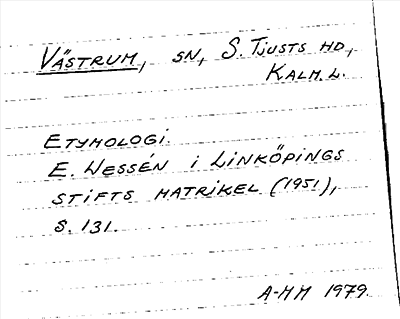 VÄSTRUM, SN, S. TJUSTS HD,
KALM. L.
ETYMOLOGI.
E. WESSÉN I LINKÖPINGS
STIFTS MATRIKEL (1951),
S. 131.
A-MM 1979.